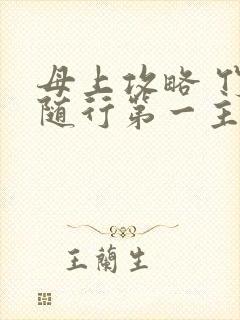 母上攻略
随行第一主
王蘭生